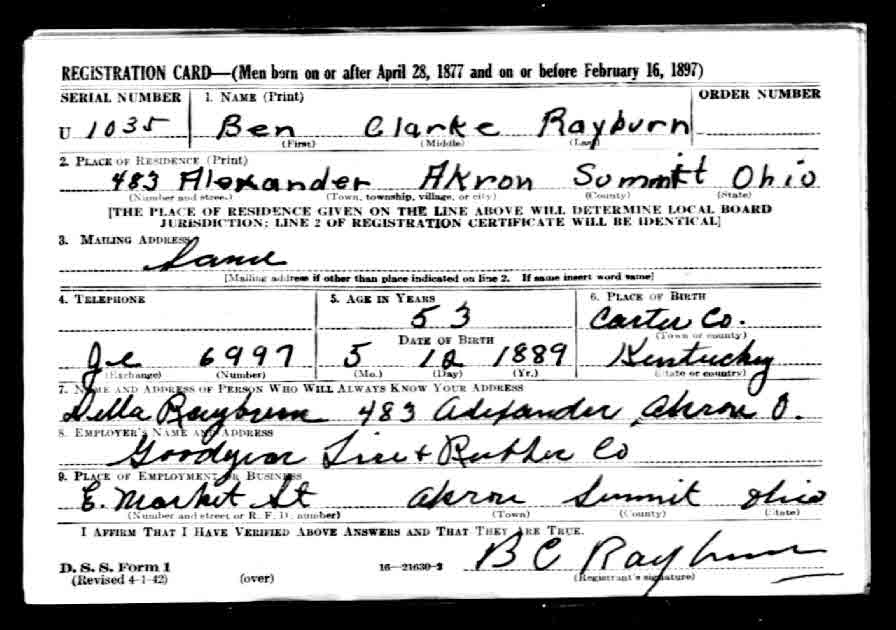 REGISTRATION CARD—(Men born on or after April 28, 1877 and on or before February 16, 1897)
SERIAL NUMBER 1. NAME (Print) ORDER NUMBER
U 1035 Ben Clarke Rayburn
(First) (Middle) (Last)
2. PLACE OF RESIDENCE (Print)
483 Alexander Akron Summitt Ohio
(Number and street) (Town, township, village, or city) (County) (State)
[THE PLACE OF RESIDENCE GIVEN ON THE LINE ABOVE WILL DETERMINE LOCAL BOARD
JURISDICTION; LINE 2 OF REGISTRATION CERTIFICATE WILL BE IDENTICAL]
3. MAILING ADDRESS
Same
[Mailing address if other than place indicated on line 2. If same insert word same]
4. TELEPHONE 5. AGE IN YEARS 6. PLACE OF BIRTH
53 Carter Co.
DATE OF BIRTH (Town or county)
Je 6997 5 12 1889 Kentucky
(Exchange) (Number) (Mo.) (Day) (Yr.) (State or country)
7. NAME AND ADDRESS OF PERSON WHO WILL ALWAYS KNOW YOUR ADDRESS
Della Rayburn 483 Alexander Akron O.
8. EMPLOYER'S NAME AND ADDRESS
Goodyear Tire + Rubber Co
9. PLACE OF EMPLOYMENT OR BUSINESS
E. Market St Akron Summit Ohio
(Number and street or R. F. D. number) (Town) (County) (State)
I AFFIRM THAT I HAVE VERIFIED ABOVE ANSWERS AND THAT THEY ARE TRUE.
B C Rayburn
D. S. S. Form 1 16—21630-2 (Registrant's signature)
(Revised 4-1-42) (over)